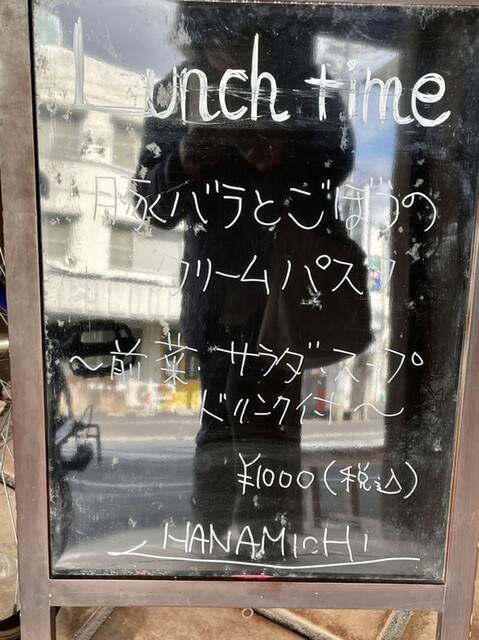 Lunch time
豚バラとごぼうの
クリームパスタ
～前菜・サラダ・スープ
ドリンク付～
¥1000(税込)
HANAMICHI